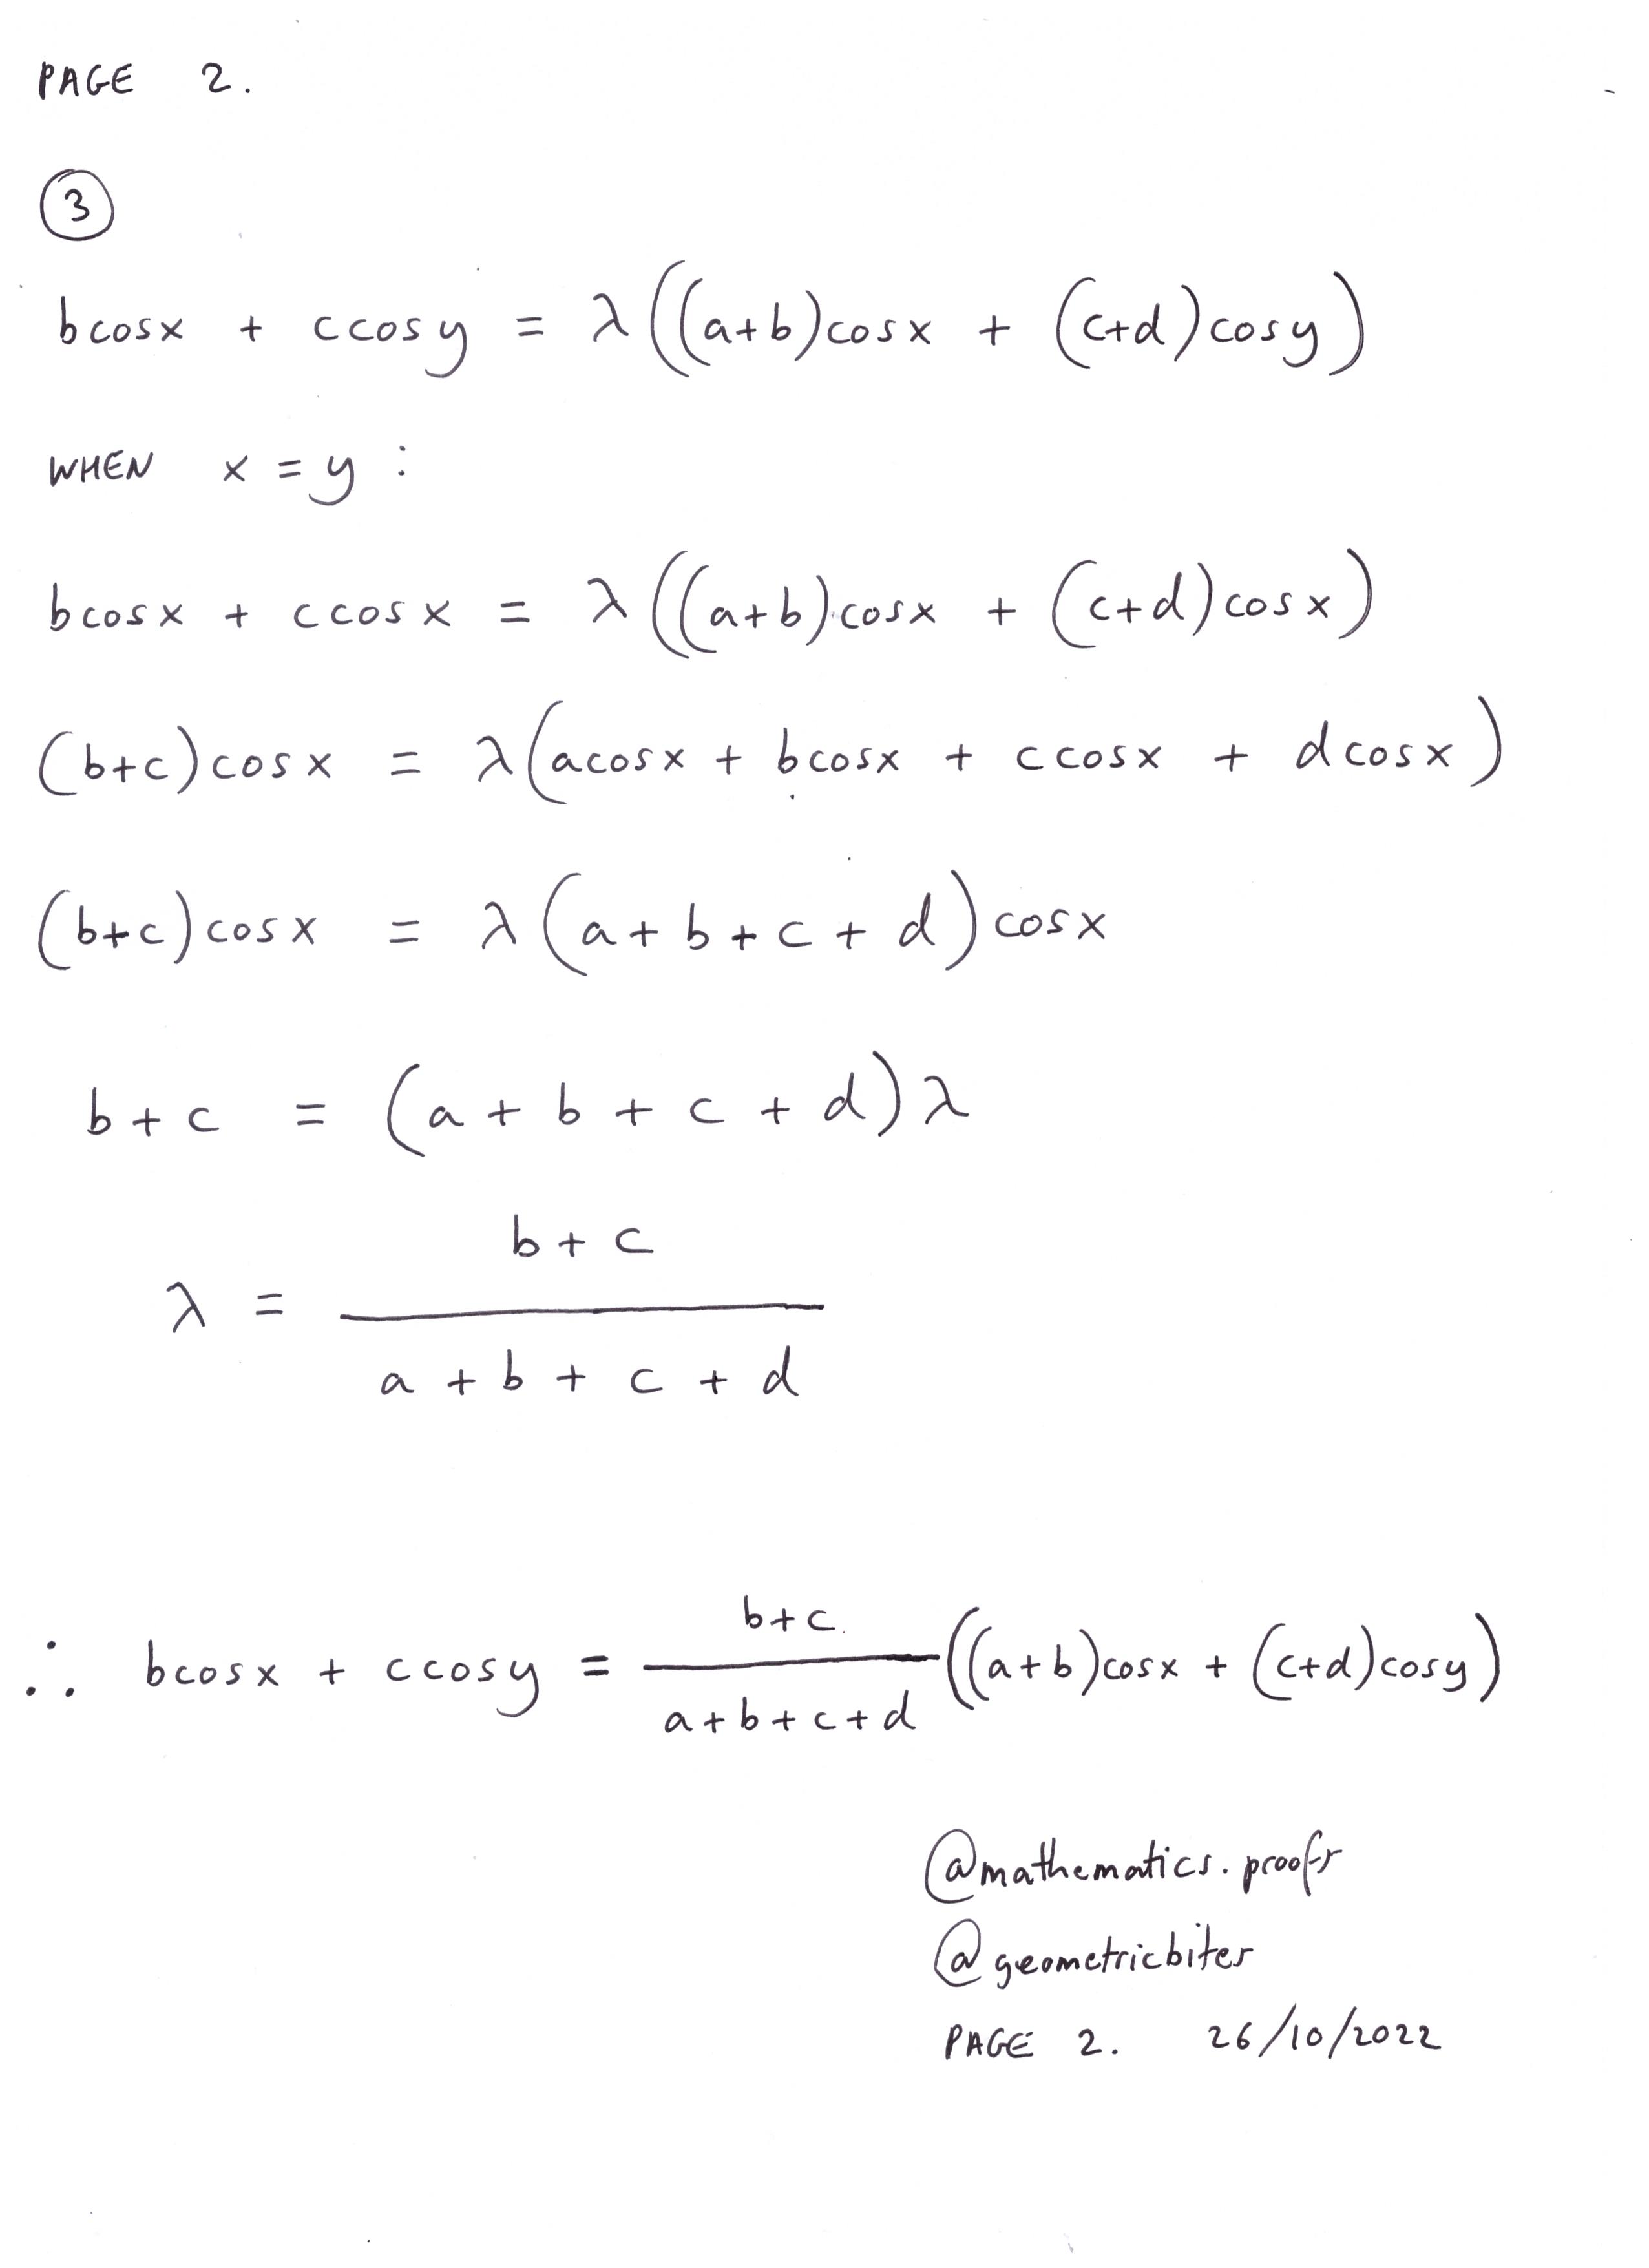 PAGE 2.
3
bcosx + ccosy = λ((a+b)cosx + (c+d)cosy)
WHEN x = y :
bcosx + ccosx = λ((a+b)cosx + (c+d)cosx)
(b+c)cosx = λ(acosx + bcosx + ccosx + dcosx)
(b+c)cosx = λ(a+b+c+d)cosx
b+c = (a+b+c+d)λ
b+c
λ =
a+b+c+d
b+c
∴ bcosx + ccosy = ((a+b)cosx + (c+d)cosy)
a+b+c+d
@mathematics.proofs
@geometricbites
PAGE 2. 26/10/2022